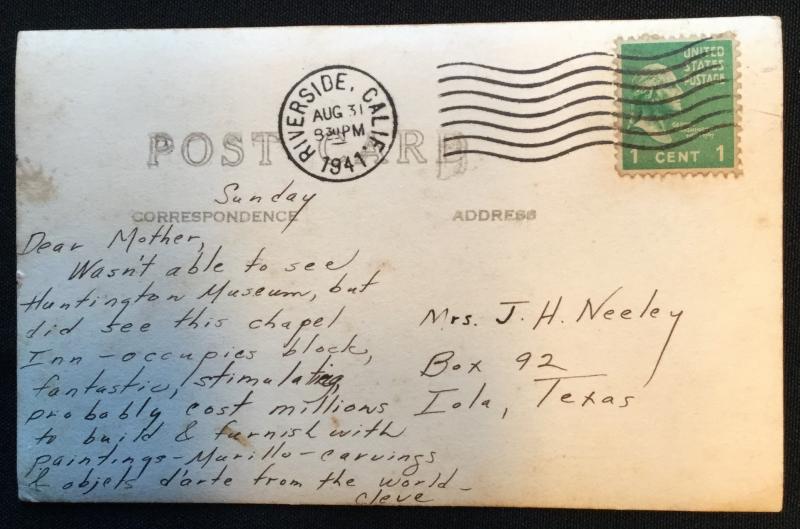 RIVERSIDE, CALIF.
AUG 31
930PM
1941
UNITED
STATES
POSTAGE
1 CENT 1
POST CARD
Sunday
CORRESPONDENCE
ADDRESS
Dear Mother,
Wasn't able to see
Huntington Museum, but
did see this chapel
Inn - occupies block,
fantastic, stimulating,
probably cost millions
to build & furnish with
paintings - Murillo - carvings
& objets d'arte from the world -
Cleve
Mrs. J. H. Neeley
Box 92
Iola, Texas